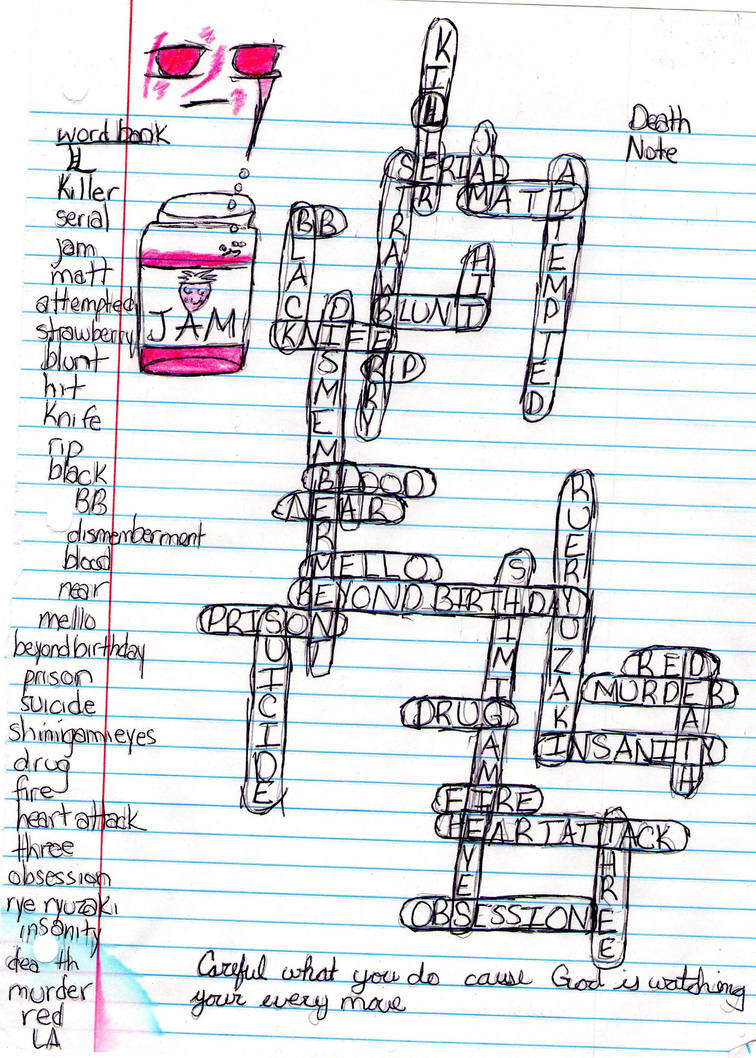 Death
Note
word bank
L
Killer
serial
jam
matt
attempted
strawberry
blunt
hit
knife
rip
black
BB
dismemberment
blood
near
mello
beyond birthday
prison
suicide
shinigami eyes
drug
fire
heart attack
three
obsession
rye ryuzaki
insanity
death
murder
red
LA
JAM
KILLER
JAM
SERIAL
MATT
ATTEMPTED
STRAWBERRY
BB
BLACK
HIT
BLUNT
DISMEMBERMENT
KNIFE
RIP
BLOOD
NEAR
RUERYUZAKI
MELLO
SHIMIGAMIEYES
BEYOND BIRTHDAY
PRISON
SUICIDE
RED
DEATH
MURDER
DRUG
INSANITY
FIRE
HEARTATTACK
THREE
OBSESSION
Careful what you do cause God is watching
your every move